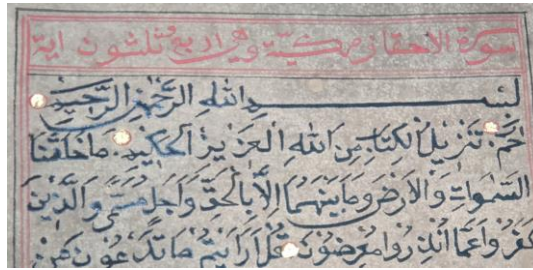 سورة الاحقاف مكية وهي اربع وثلثون اية
بسم الله الرحمن الرحيم
حم تنزيل الكتاب من الله العزيز الحكيم ما خلقنا
السموات والارض وما بينهما الا بالحق واجل مسمى والذين
كفروا عما انذروا معرضون قل ارايتم ما تدعون من